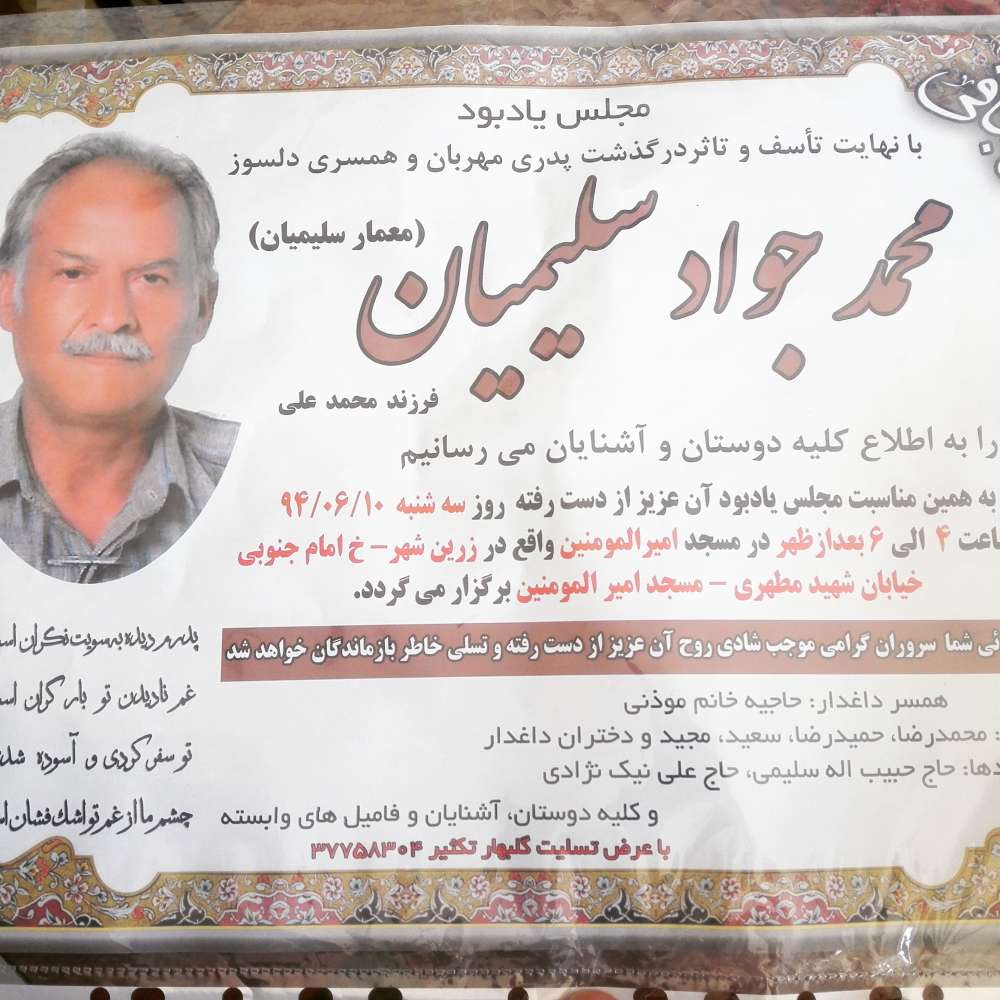 مجلس یادبود
با نهایت تأسف و تاثر درگذشت پدری مهربان و همسری دلسوز
محمد جواد سلیمیان
(معمار سلیمیان)
فرزند محمد علی
را به اطلاع کلیه دوستان و آشنایان می رسانیم
به همین مناسبت مجلس یادبود آن عزیز از دست رفته روز سه شنبه ۹۴/۰۶/۱۰
اعت ۴ الی ۶ بعدازظهر در مسجد امیرالمومنین واقع در زرین شهر – خ امام جنوبی
خیابان شهید مطهری – مسجد امیر المومنین برگزار می گردد.
شما سروران گرامی موجب شادی روح آن عزیز از دست رفته و تسلی خاطر بازماندگان خواهد شد
همسر داغدار: حاجیه خانم موذنی
: محمدرضا، حمیدرضا، سعید، مجید و دختران داغدار
دها: حاج حبیب اله سلیمی، حاج علی نیک نژادی
و کلیه دوستان، آشنایان و فامیل های وابسته
با عرض تسلیت گلبهار تکثیر ۳۷۷۵۸۳۰۴
پدرم دیده بسویت نگران اس
غم نادیدن تو بار گران اس
تو سفر کردی و آسوده شد
چشم ما از غم تو اشک فشان اس